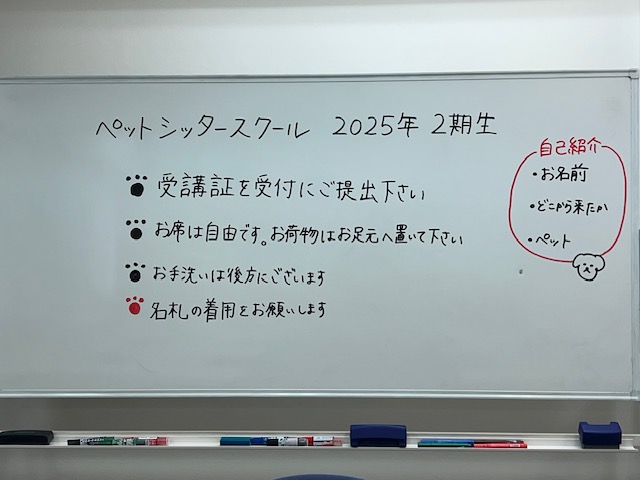 ペットシッタースクール 2025年 2期生
受講証を受付にご提出下さい
お席は自由です。お荷物はお足元へ置いて下さい
お手洗いは後方にございます
名札の着用をお願いします
自己紹介
・お名前
・どこから来たか
・ペット